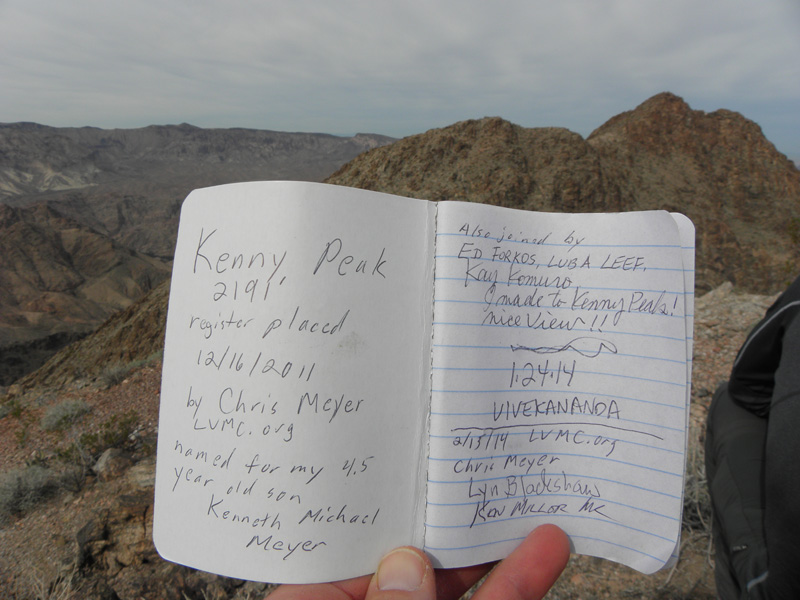 Kenny Peak
2191'
register placed
12/16/2011
by Chris Meyer
LVMC.org
named for my 4.5
year old son
Kenneth Michael
Meyer
Also joined by
ED FORKOS, LUBA LEEF,
Kay Komuro
I made to Kenny Peak!
nice View!!
1.24.14
VIVEKANANDA
2/13/14 LVMC.org
Chris Meyer
Lyn Blackshaw
KEN MILLER MC